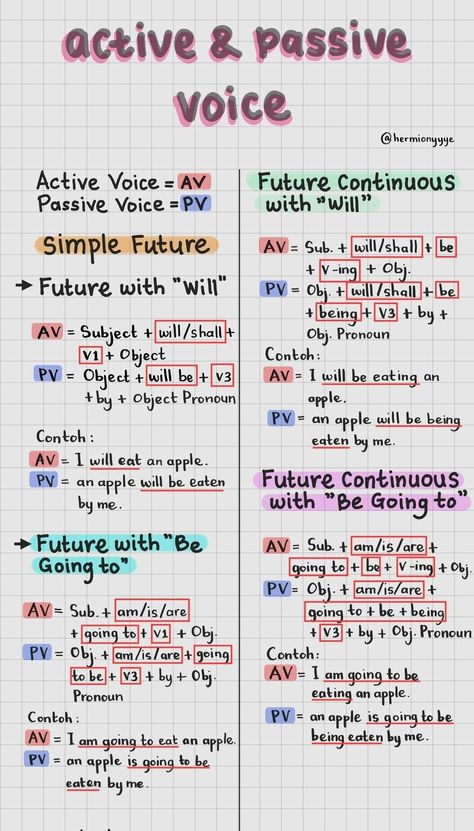 active & passive
voice
@hermionyyye
Active Voice = AV
Passive Voice = PV
Simple Future
→ Future with "Will"
AV = Subject + will/shall +
V1 + Object
PV = Object + will be + V3
+ by + Object Pronoun
Contoh:
AV = I will eat an apple.
PV = an apple will be eaten
by me.
→ Future with "Be
Going to"
AV = Sub. + am/is/are
+ going to + V1 + Obj.
PV = Obj. + am/is/are + going
to be + V3 + by + Obj.
Pronoun
Contoh:
AV = I am going to eat an apple.
PV = an apple is going to be
eaten by me.
Future Continuous
with "Will"
AV = Sub. + will/shall + be
+ V-ing + Obj.
PV = Obj. + will/shall + be
+ being + V3 + by +
Obj. Pronoun
Contoh:
AV = I will be eating an
apple.
PV = an apple will be being
eaten by me.
Future Continuous
with "Be Going to"
AV = Sub. + am/is/are +
going to + be + V-ing + Obj.
PV = Obj. + am/is/are +
going to + be + being
+ V3 + by + Obj. Pronoun
Contoh:
AV = I am going to be
eating an apple.
PV = an apple is going to be
being eaten by me.